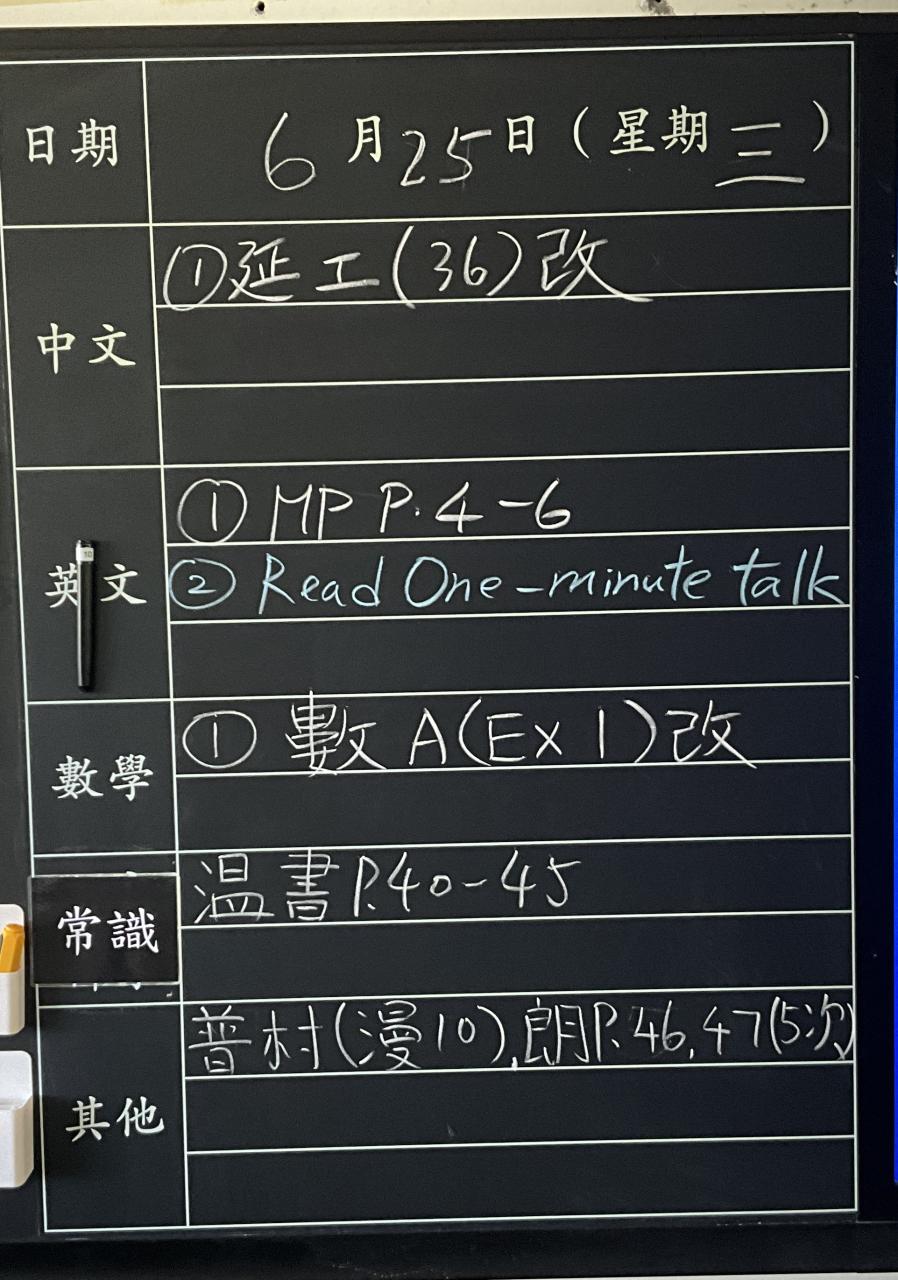 日期 6月25日(星期三)
中文 ①延工(36)改
英文 ① MP P.4-6
② Read One-minute talk
數學 ① 數A(Ex 1)改
常識 温書P.40-45
其他 普村(漫10),朗P.46,47(5次)